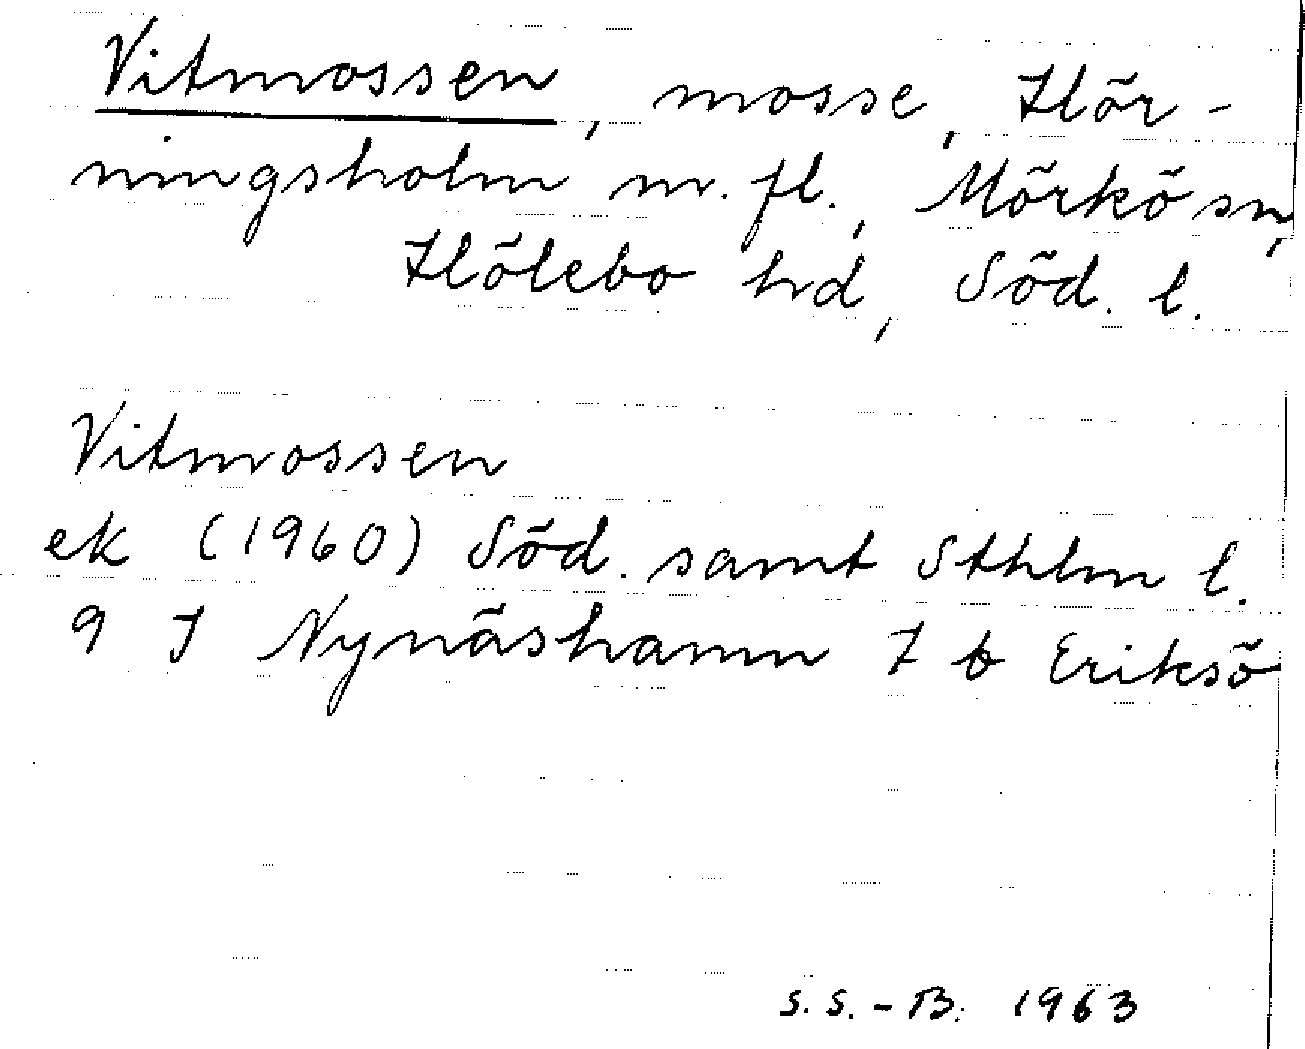 Vitmossen, mosse, Hör-
ningsholm m. fl., Mörkö sn,
Hölebo hd, Söd. l.
Vitmossen
ek (1960) Söd. samt Sthlm l.
9 I Nynäshamn 7 b Eriksö
S.S.-B. 1963